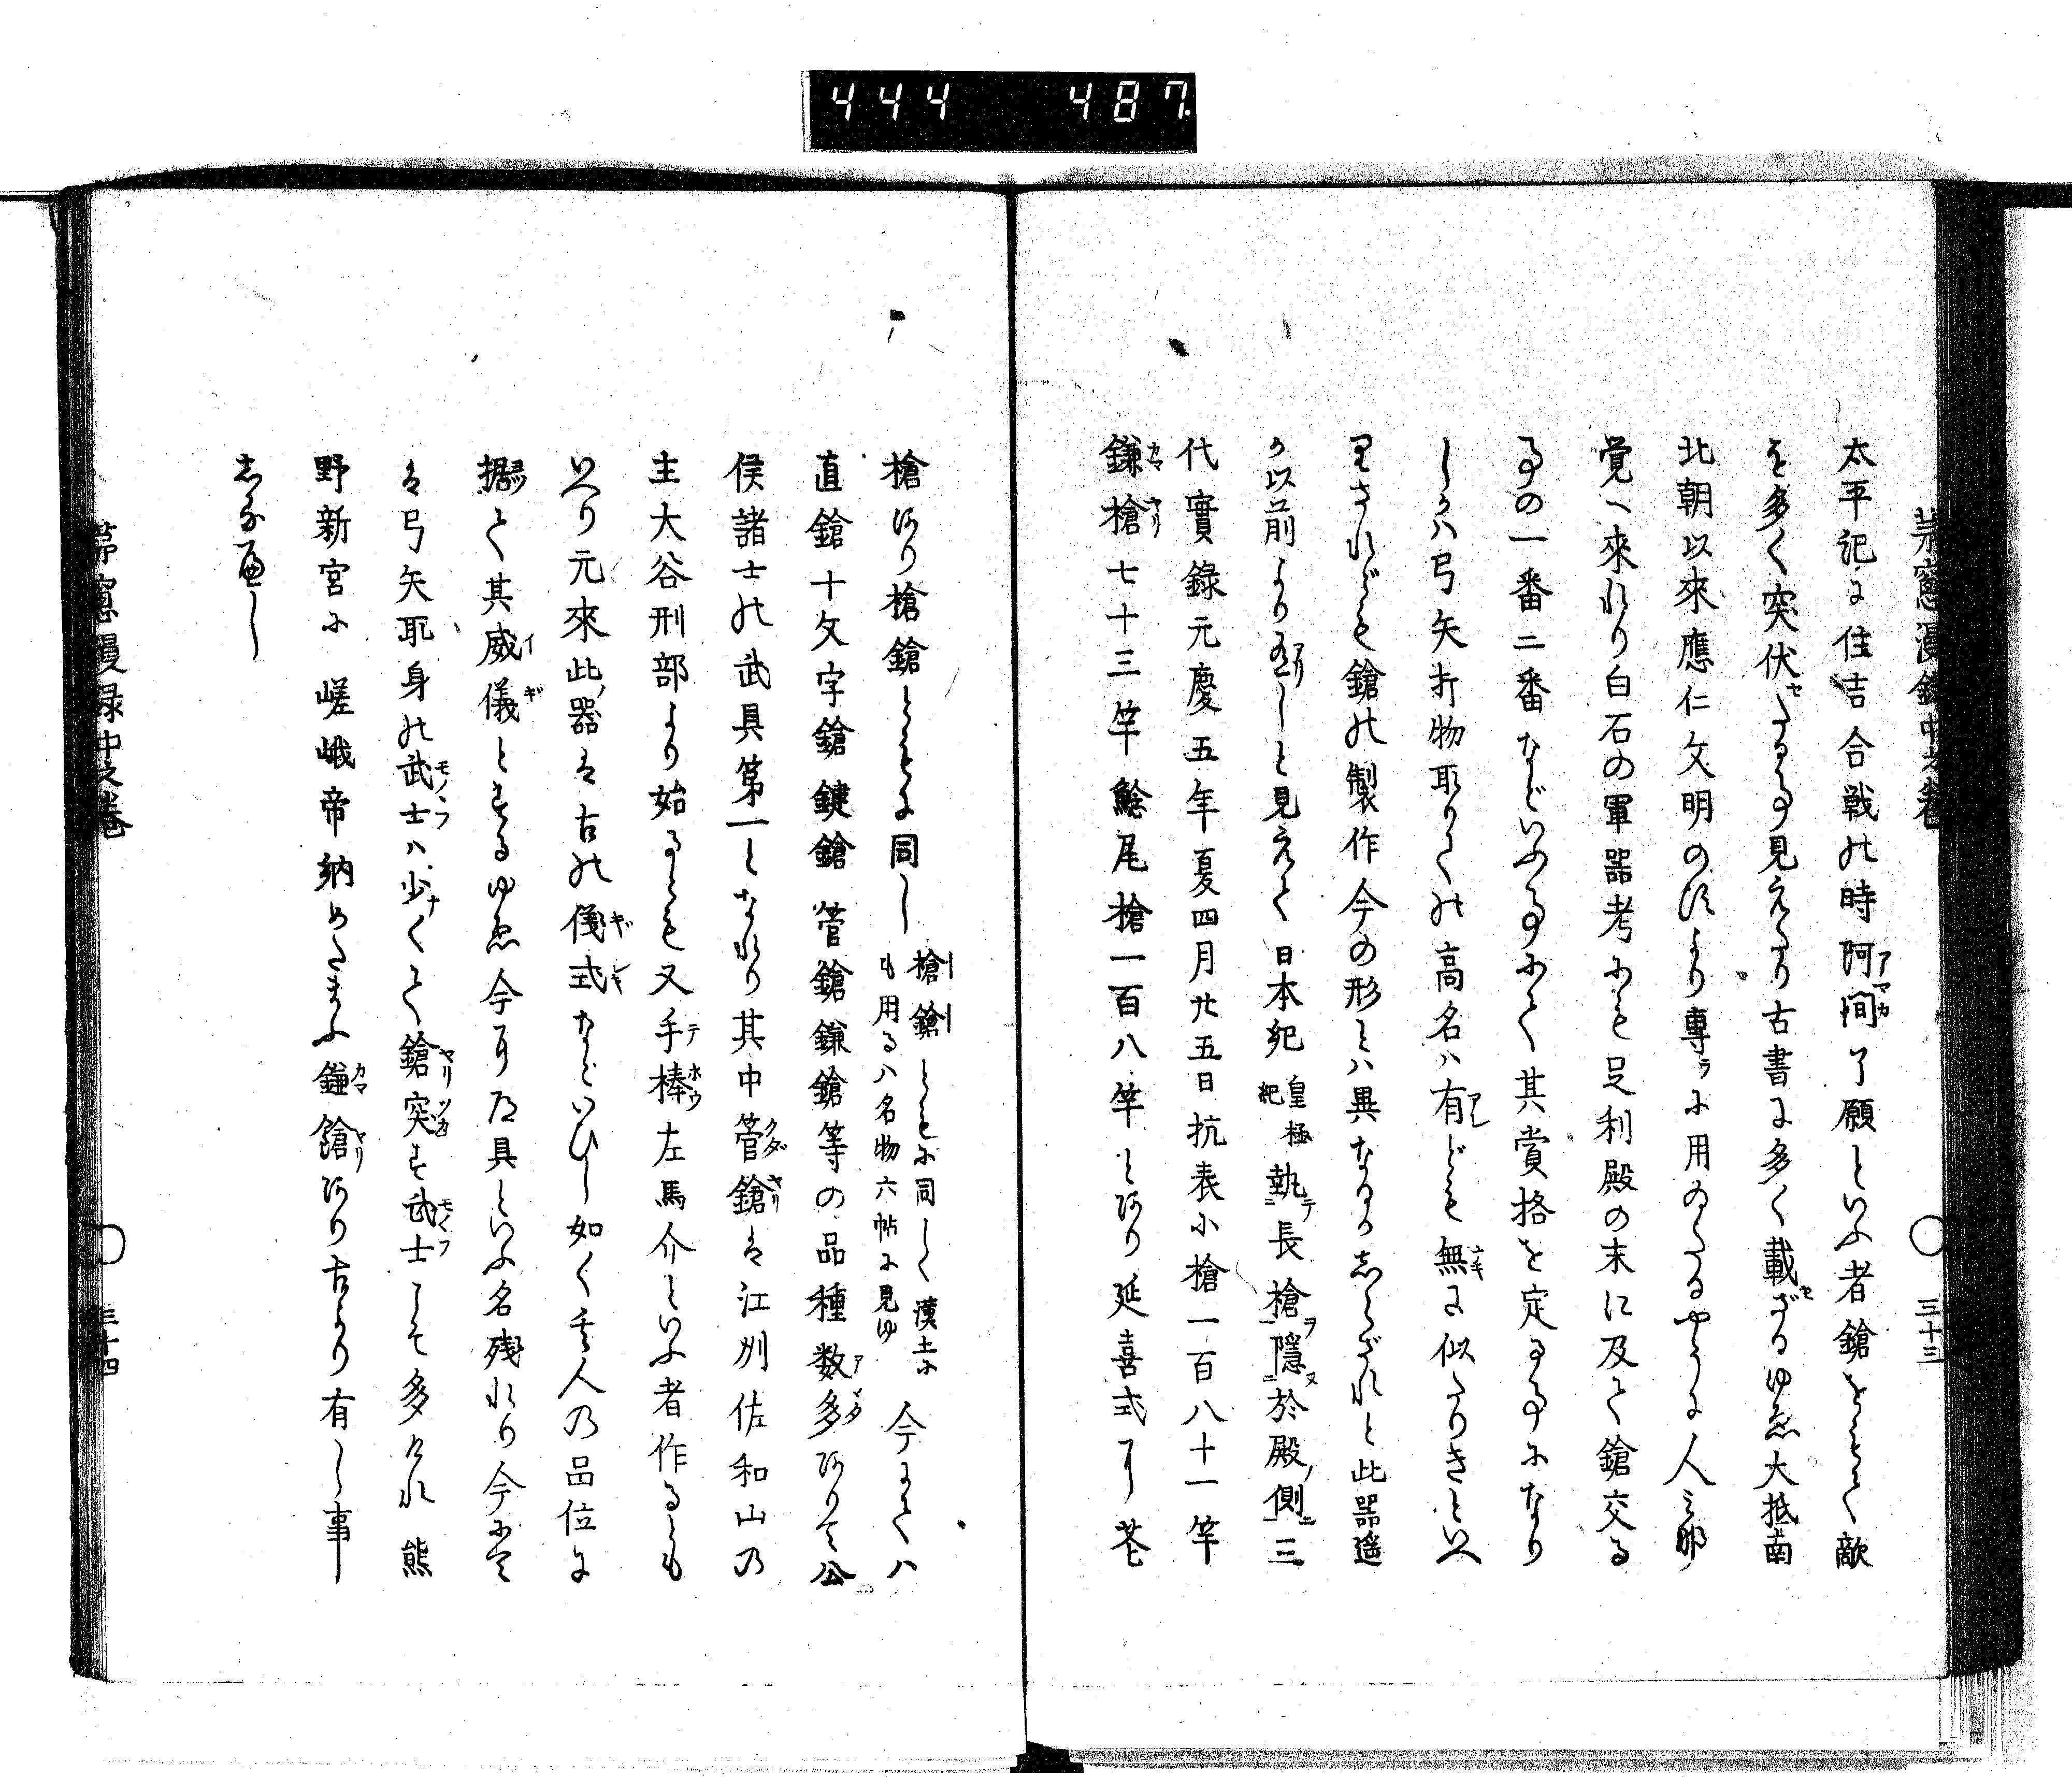 444 487
茅窓漫録中之巻 三十三
太平記に住吉合戦の時阿間了願といふ者鎗をもて敵
を多く突伏せたる事見えたり古書に多く載ざるゆゑ大抵南
北朝以來應仁文明の頃より專ラに用ゐたるやうに人々
覚へ來れり白石の軍器考にも足利殿の末に及て鎗交る
事の一番二番などいふ事にて其賞格を定る事になり
しかハ弓矢打物取りての高名ハ有ども無に似たりきといへ
りされども鎗の製作今の形とハ異なるかしらざれと此器遥
か以前より有しと見えて日本紀皇極紀執テ長槍ヲ隱ヌ於殿ノ側ニ三
代實錄元慶五年夏四月廿五日抗表小槍一百八十一竿
鎌槍七十三竿鯰尾槍一百八竿とあり延喜式に莅
槍あり槍鎗ともに同し槍鎗ともに同しく漢土にも用る八名物六帖に見ゆ今にてハ
直鎗十文字鎗鍵鎗管鎗鎌鎗等の品種数多ありて公
侯諸士の武具第一となれり其中管鎗は江州佐和山の
主大谷刑部より始るとも又手棒左馬介といふ者作るとも
いへり元來此ノ器は古の儀式などいひし如く貴人の品位に
據て其威儀とするゆゑ今に道具といふ名残れり今にて
は弓矢取身の武士ハ少くて鎗突す武士こそ多けれ熊
野新宮に嵯峨帝納めたまふ鎌鎗あり古より有し事
しるべし
茅窓漫録中之巻 三十四